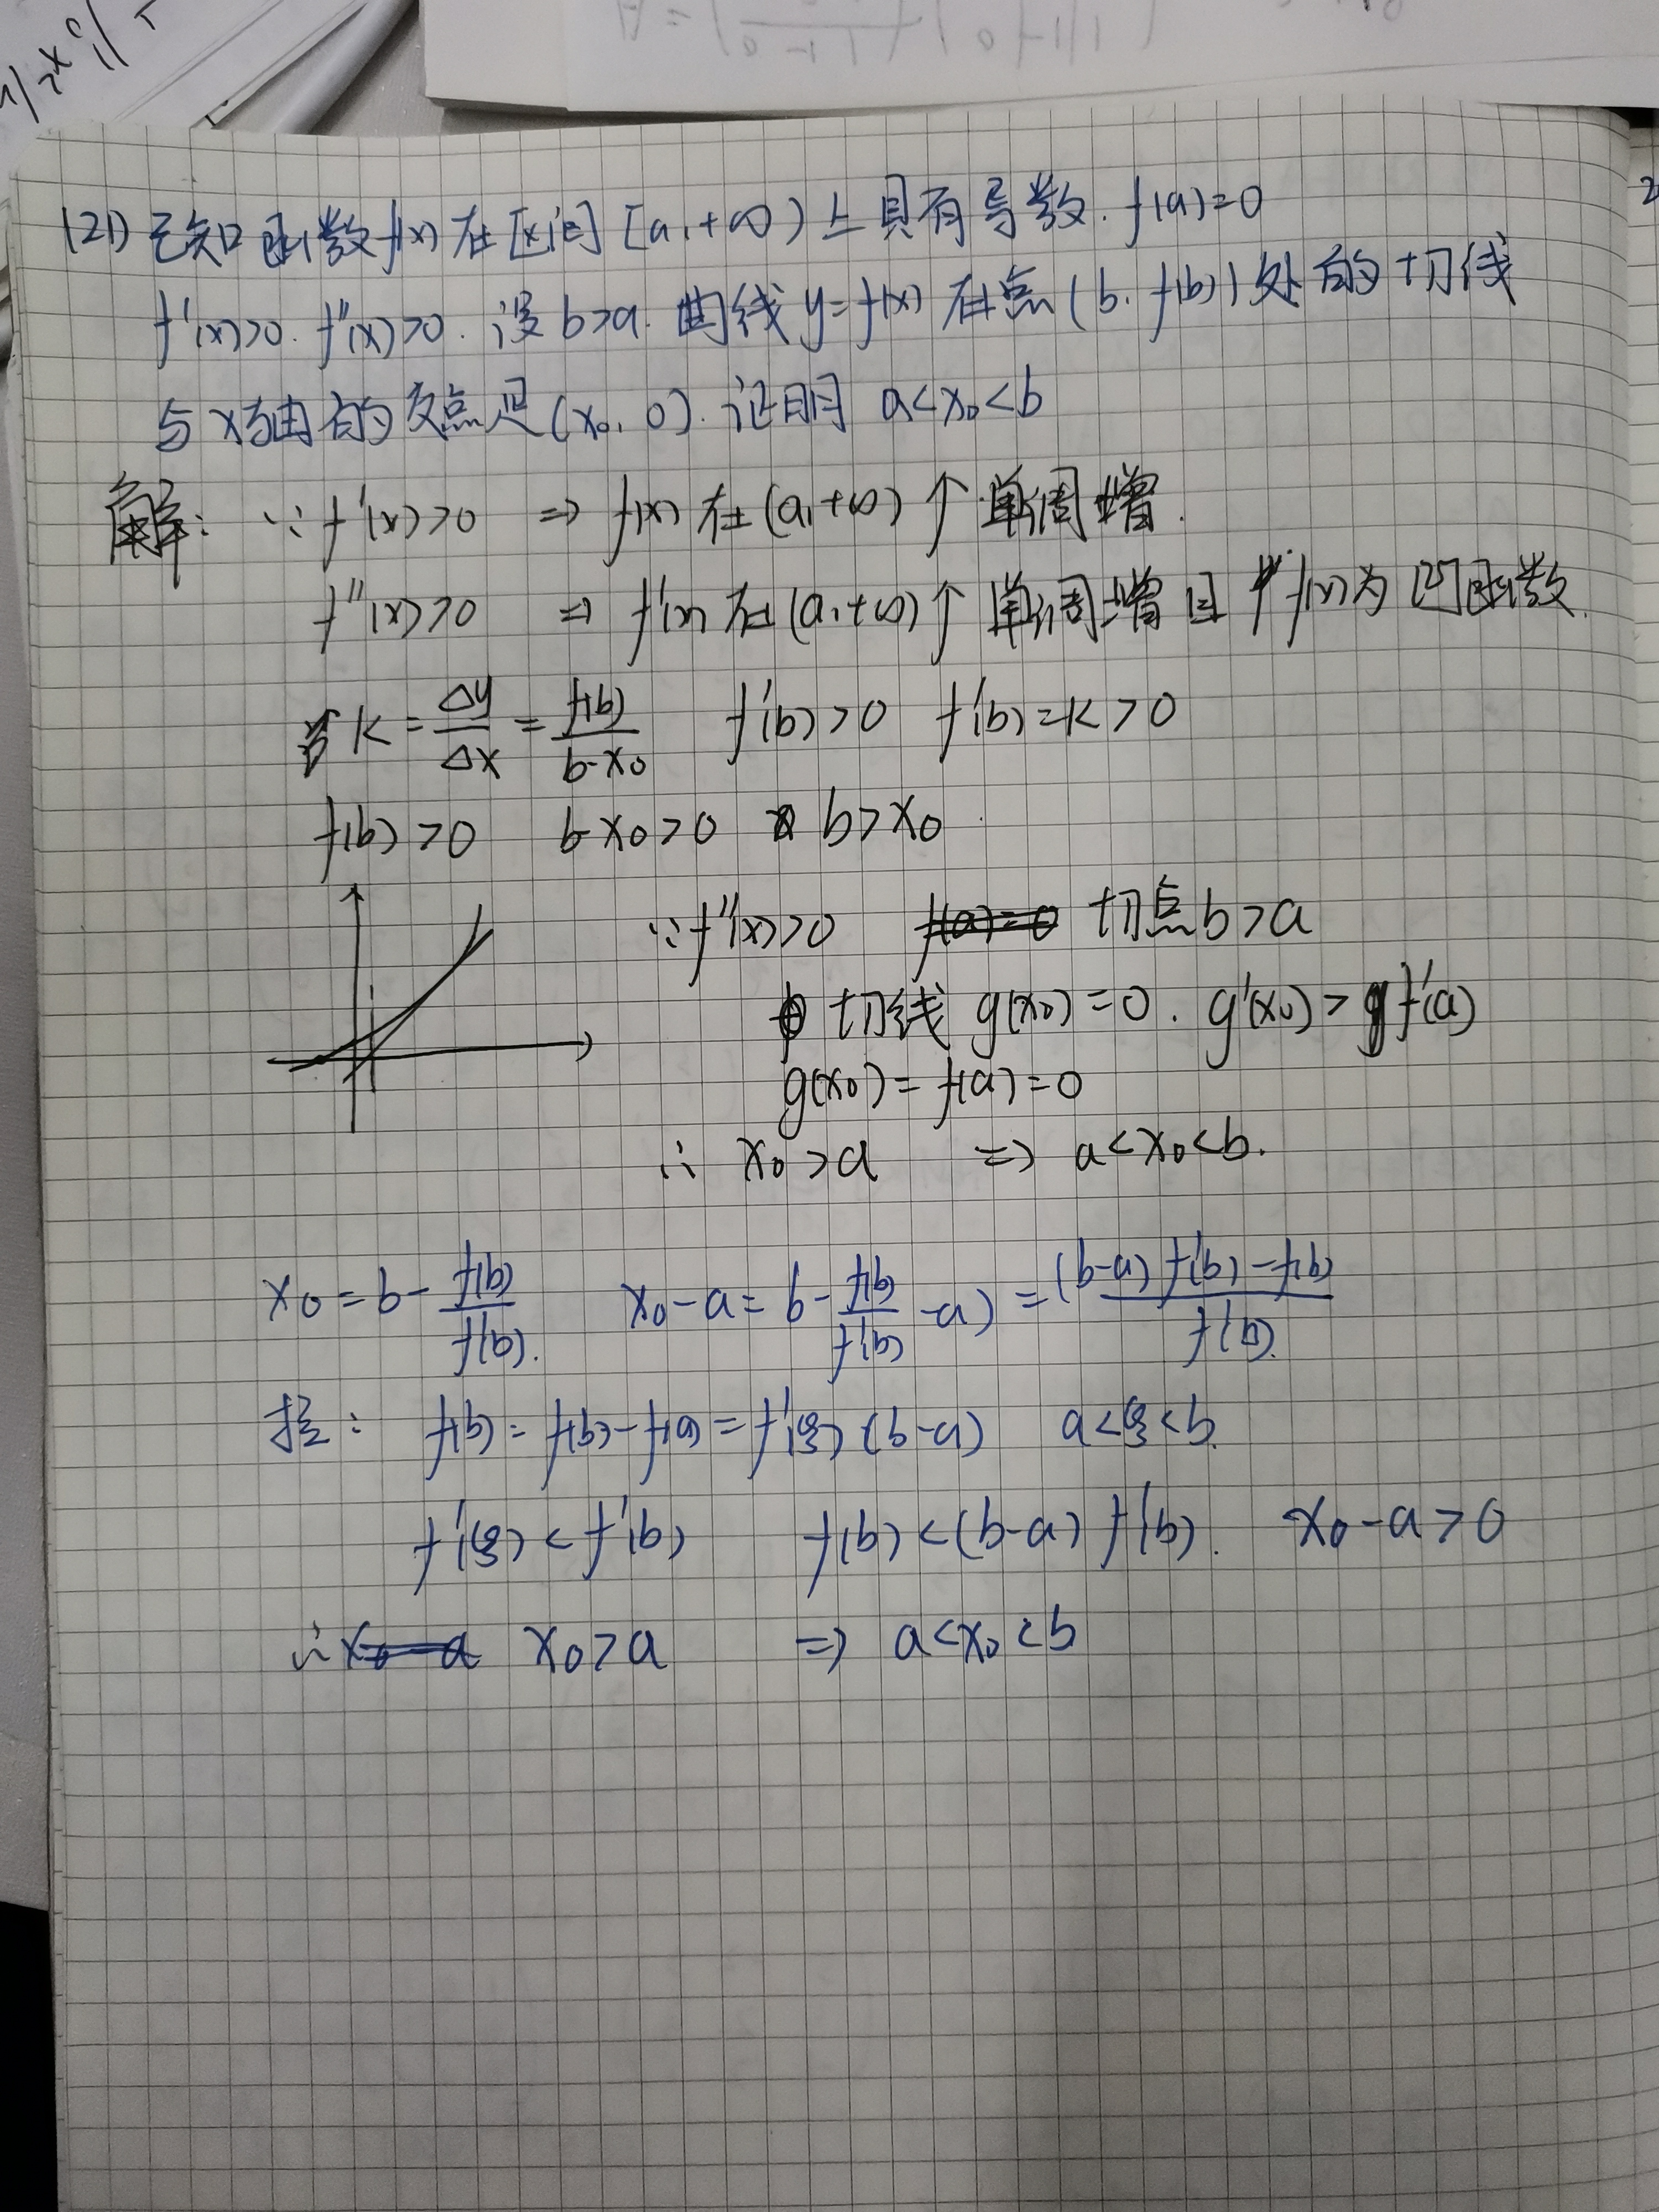 (21) 已知函数f(x)在区间[a,+∞)上具有导数. f(a)=0
f'(x)>0. f''(x)>0. 设b>a. 曲线y=f(x)在点(b, f(b))处的切线
与x轴的交点是(x₀, 0). 证明 a<x₀<b
解: ∵ f'(x)>0 ⇒ f(x)在(a,+∞)↑单调增.
f''(x)>0 ⇒ f'(x)在(a,+∞)↑单调增且 f(x)为凹函数.
K = Δy/Δx = f(b)/(b-x₀) f'(b)>0 f'(b)=K>0
f(b)>0 b-x₀>0 b>x₀
∵ f''(x)>0 f(a)=0 切点b>a
切线 g(x₀)=0. g'(x₀)>f'(a)
g(x₀)=f(a)=0
∴ x₀>a ⇒ a<x₀<b.
x₀=b-f(b)/f'(b). x₀-a=b-f(b)/f'(b)-a)=(b-a)f'(b)-f(b)/f'(b).
拉: f(b)=f(b)-f(a)=f'(ξ)(b-a) a<ξ<b.
f'(ξ)<f'(b) f(b)<(b-a)f'(b). x₀-a>0
∴ x₀>a ⇒ a<x₀<b